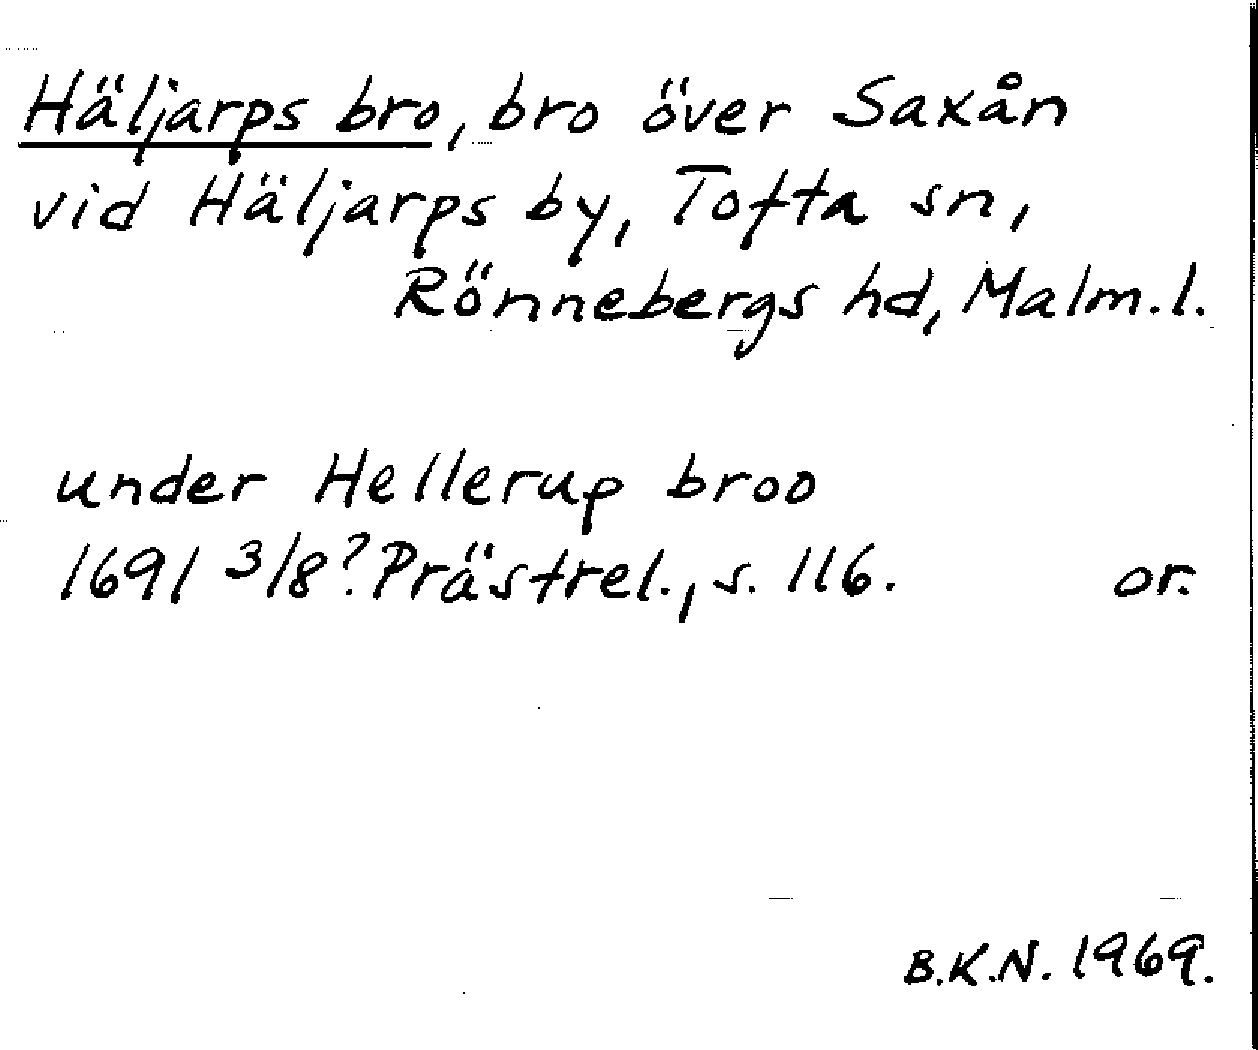 Häljarps bro, bro över Saxån
vid Häljarps by, Tofta sn,
Rönnebergs hd, Malm.l.
under Hellerup broo
1691 3/8? Prästrel., s. 116. or.
B.K.N. 1969.